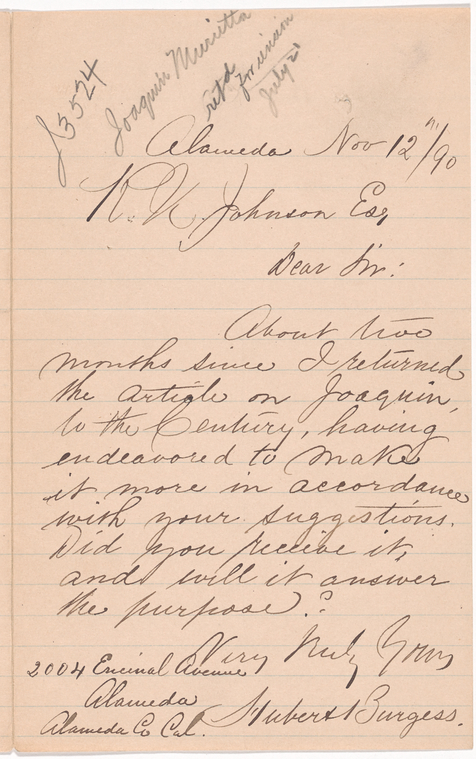 J3524
Joaquin Murietta
ret'd
for revision
July 21
Alameda Nov 12th/90
R. U. Johnson Esq
Dear Sir:
About two
months since I returned
the article on Joaquin,
to the Century, having
endeavored to make
it more in accordance
with your suggestions.
Did you receive it,
and will it answer
the purpose?
Very Truly Yours
Hubert Burgess.
2004 Encinal Avenue
Alameda
Alameda Co Cal.